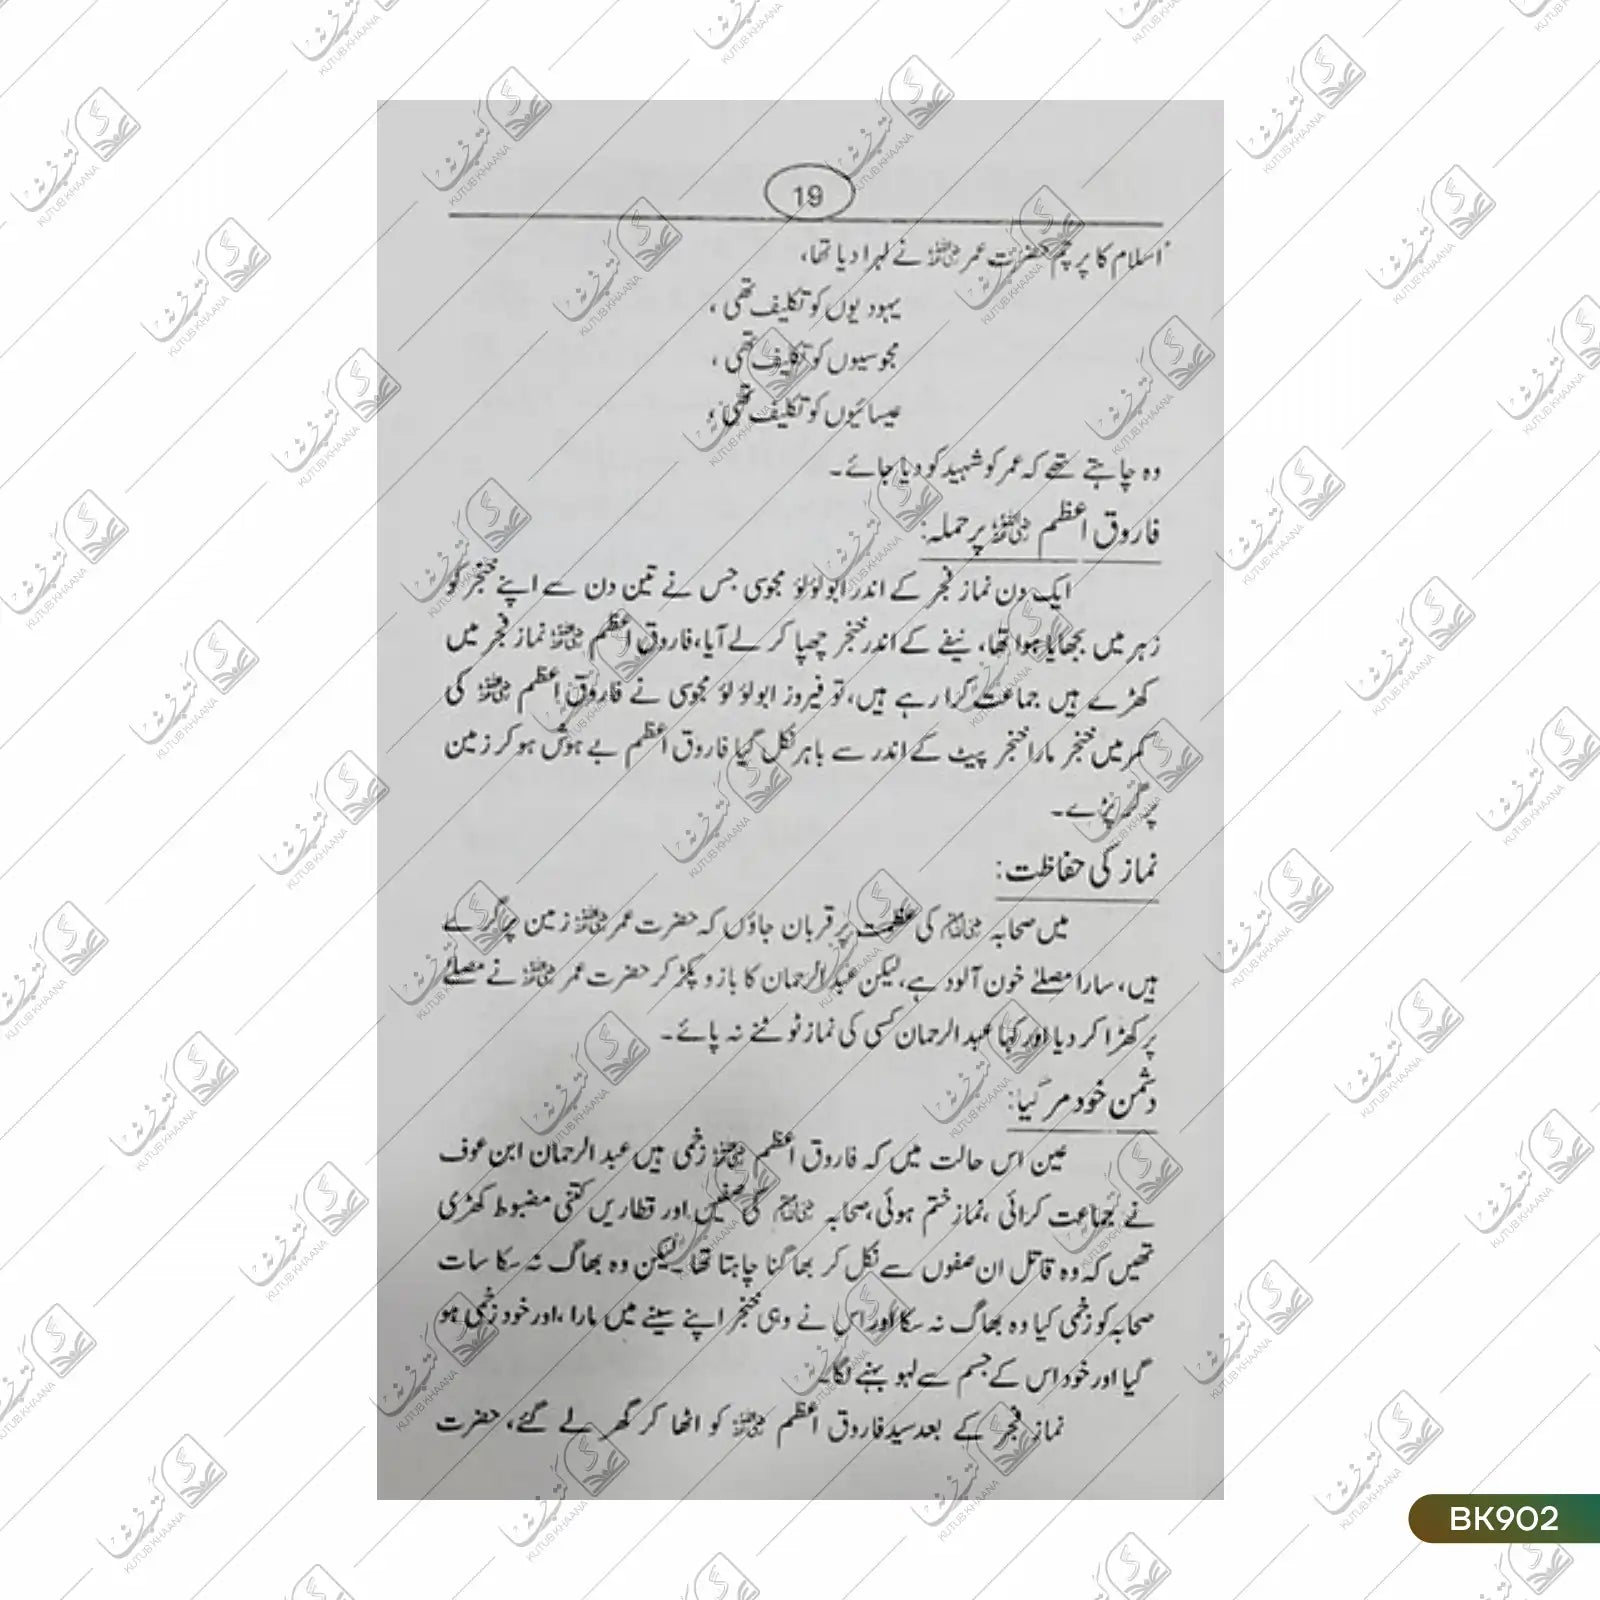 19
اسلام کا پرچم حضرت عمر رضی اللہ عنہ نے لہرا دیا تھا،
یہودیوں کو تکلیف تھی،
مجوسیوں کو تکلیف تھی،
عیسائیوں کو تکلیف تھی،
وہ چاہتے تھے کہ عمر کو شہید کو دیا جائے۔
فاروق اعظم رضی اللہ عنہ پر حملہ:
ایک دن نماز فجر کے اندر ابو لؤلؤ مجوسی جس نے تین دن سے اپنے خنجر کو
زہر میں بجھایا ہوا تھا، نیفے کے اندر خنجر چھپا کر لے آیا، فاروق اعظم رضی اللہ عنہ نماز فجر میں
کھڑے ہیں جماعت کرا رہے ہیں، تو فیروز ابو لؤ لؤ مجوسی نے فاروق اعظم رضی اللہ عنہ کی
کمر میں خنجر مارا خنجر پیٹ کے اندر سے باہر نکل گیا فاروق اعظم بے ہوش ہو کر زمین
پر گر پڑے۔
نماز کی حفاظت:
میں صحابہ رضی اللہ عنہم کی عظمت پر قربان جاؤں کہ حضرت عمر رضی اللہ عنہ زمین پر گرے
ہیں، سارا مصلے خون آلود ہے، لیکن عبد الرحمان کا بازو پکڑ کر حضرت عمر رضی اللہ عنہ نے مصلے
پر کھڑا کر دیا اور کہا عبد الرحمان کسی کی نماز ٹوٹنے نہ پائے۔
دشمن خود مر گیا:
عین اس حالت میں کہ فاروق اعظم رضی اللہ عنہ زخمی ہیں عبد الرحمان ابن عوف
نے جماعت کرائی، نماز ختم ہوئی، صحابہ رضی اللہ عنہم کی صفیں اور قطاریں کتنی مضبوط کھڑی
تھیں کہ وہ قاتل ان صفوں سے نکل کر بھاگنا چاہتا تھا۔ لیکن وہ بھاگ نہ سکا سات
صحابہ کو زخمی کیا وہ بھاگ نہ سکا اور اس نے وہی خنجر اپنے سینے میں مارا، اور خود زخمی ہو
گیا اور خود اس کے جسم سے لہو بہنے لگا۔
نماز فجر کے بعد سید فاروق اعظم رضی اللہ عنہ کو اٹھا کر گھر لے گئے، حضرت
کتب خانہ
KUTUB KHAANA
BK902